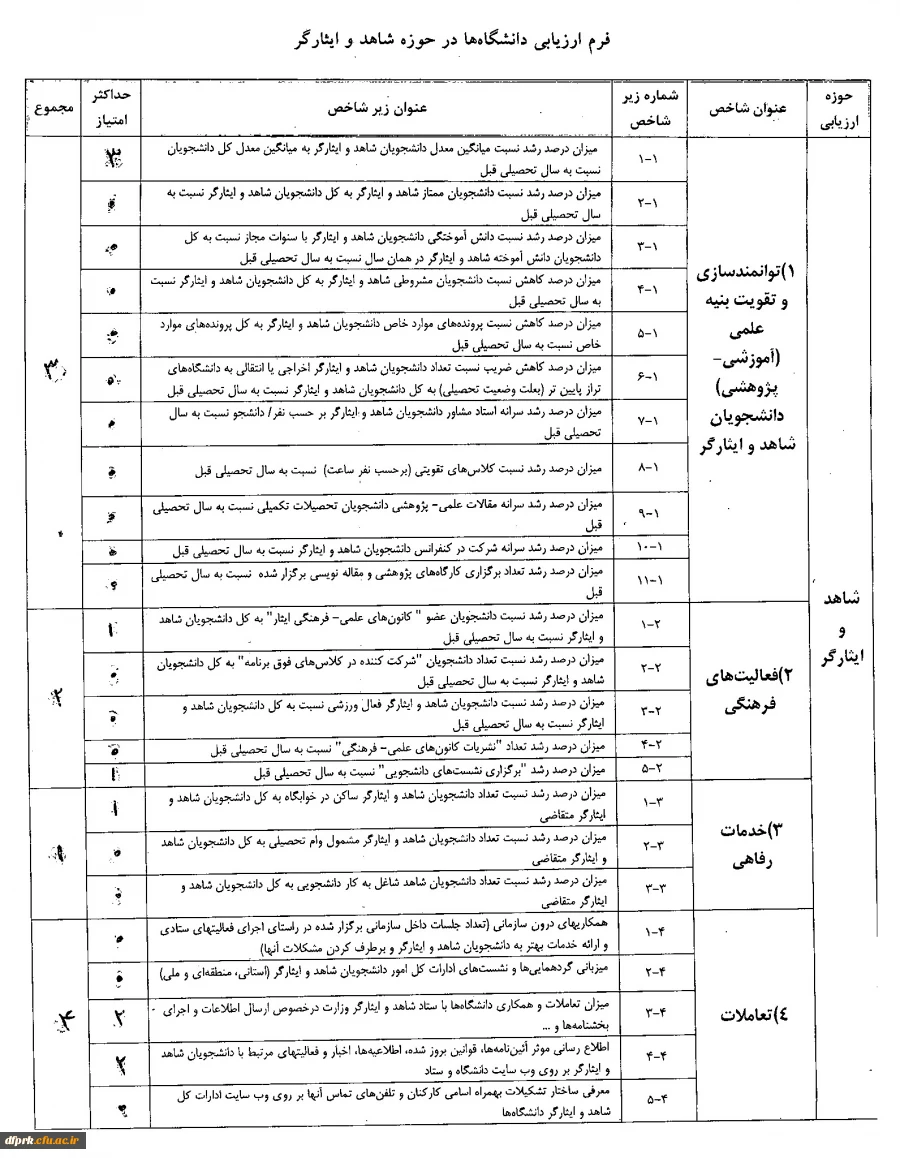 فرم ارزیابی دانشگاه‌ها در حوزه شاهد و ایثارگر
حوزه ارزیابی
عنوان شاخص
شماره زیر شاخص
عنوان زیر شاخص
حداکثر امتیاز
مجموع
شاهد و ایثارگر
۱)توانمندسازی
و تقویت بنیه
علمی
(آموزشی-
پژوهشی)
دانشجویان
شاهد و ایثارگر
۱-۱
میزان درصد رشد نسبت میانگین معدل دانشجویان شاهد و ایثارگر به میانگین معدل کل دانشجویان
نسبت به سال تحصیلی قبل
۲-۱
میزان درصد رشد نسبت دانشجویان ممتاز شاهد و ایثارگر به کل دانشجویان شاهد و ایثارگر نسبت به
سال تحصیلی قبل
۳-۱
میزان درصد رشد نسبت دانش آموختگی دانشجویان شاهد و ایثارگر با سنوات مجاز نسبت به کل
دانشجویان دانش آموخته شاهد و ایثارگر در همان سال نسبت به سال تحصیلی قبل
۴-۱
میزان درصد کاهش نسبت دانشجویان مشروطی شاهد و ایثارگر به کل دانشجویان شاهد و ایثارگر نسبت
به سال تحصیلی قبل
۵-۱
میزان درصد کاهش نسبت پرونده‌های موارد خاص دانشجویان شاهد و ایثارگر به کل پرونده‌های موارد
خاص نسبت به سال تحصیلی قبل
۶-۱
میزان درصد کاهش ضریب نسبت تعداد دانشجویان شاهد و ایثارگر اخراجی یا انتقالی به دانشگاه‌های
تراز پایین تر (بعلت وضعیت تحصیلی) به کل دانشجویان شاهد و ایثارگر نسبت به سال تحصیلی قبل
۷-۱
میزان درصد رشد سرانه استاد مشاور دانشجویان شاهد و ایثارگر بر حسب نفر/ دانشجو نسبت به سال
تحصیلی قبل
۸-۱
میزان درصد رشد نسبت کلاس‌های تقویتی (برحسب نفر ساعت) نسبت به سال تحصیلی قبل
۹-۱
میزان درصد رشد سرانه مقالات علمی- پژوهشی دانشجویان تحصیلات تکمیلی نسبت به سال تحصیلی
قبل
۱۰-۱
میزان درصد رشد سرانه شرکت در کنفرانس دانشجویان شاهد و ایثارگر نسبت به سال تحصیلی قبل
۱۱-۱
میزان درصد رشد تعداد برگزاری کارگاه‌های پژوهشی و مقاله نویسی برگزار شده نسبت به سال تحصیلی
قبل
۲)فعالیت‌های
فرهنگی
۱-۲
میزان درصد رشد نسبت دانشجویان عضو " کانون‌های علمی- فرهنگی ایثار" به کل دانشجویان شاهد
و ایثارگر نسبت به سال تحصیلی قبل
۱
۲
۲-۲
میزان درصد رشد نسبت تعداد دانشجویان "شرکت کننده در کلاس‌های فوق برنامه" به کل دانشجویان
شاهد و ایثارگر نسبت به سال تحصیلی قبل
۳-۲
میزان درصد رشد نسبت دانشجویان شاهد و ایثارگر فعال ورزشی نسبت به کل دانشجویان شاهد و
ایثارگر نسبت به سال تحصیلی قبل
۴-۲
میزان درصد رشد تعداد "نشریات کانون‌های علمی- فرهنگی" نسبت به سال تحصیلی قبل
۵-۲
میزان درصد رشد "برگزاری نشست‌های دانشجویی" نسبت به سال تحصیلی قبل
۱
۳)خدمات
رفاهی
۱-۳
میزان درصد رشد نسبت تعداد دانشجویان شاهد و ایثارگر ساکن در خوابگاه به کل دانشجویان شاهد و
ایثارگر متقاضی
۱
۲-۳
میزان درصد رشد نسبت تعداد دانشجویان شاهد و ایثارگر مشمول وام تحصیلی به کل دانشجویان شاهد
و ایثارگر متقاضی
۳-۳
میزان درصد رشد نسبت تعداد دانشجویان شاهد شاغل به کار دانشجویی به کل دانشجویان شاهد و
ایثارگر متقاضی
٤)تعاملات
۱-۴
همکاریهای درون سازمانی (تعداد جلسات داخل سازمانی برگزار شده در راستای اجرای فعالیتهای ستادی
و ارائه خدمات بهتر به دانشجویان شاهد و ایثارگر و برطرف کردن مشکلات آنها)
۲-۴
میزبانی گردهمایی‌ها و نشست‌های ادارات کل امور دانشجویان شاهد و ایثارگر (استانی، منطقه‌ای و ملی)
۳-۴
میزان تعاملات و همکاری دانشگاه‌ها با ستاد شاهد و ایثارگر وزارت درخصوص ارسال اطلاعات و اجرای
بخشنامه‌ها و ...
۲
۴-۴
اطلاع رسانی موثر آئین‌نامه‌ها، قوانین بروز شده، اطلاعیه‌ها، اخبار و فعالیتهای مرتبط با دانشجویان شاهد
و ایثارگر بر روی وب سایت دانشگاه و ستاد
۲
۵-۴
معرفی ساختار تشکیلات بهمراه اسامی کارکنان و تلفن‌های تماس آنها بر روی وب سایت ادارات کل
شاهد و ایثارگر دانشگاه‌ها
dfprk.cfu.ac.ir